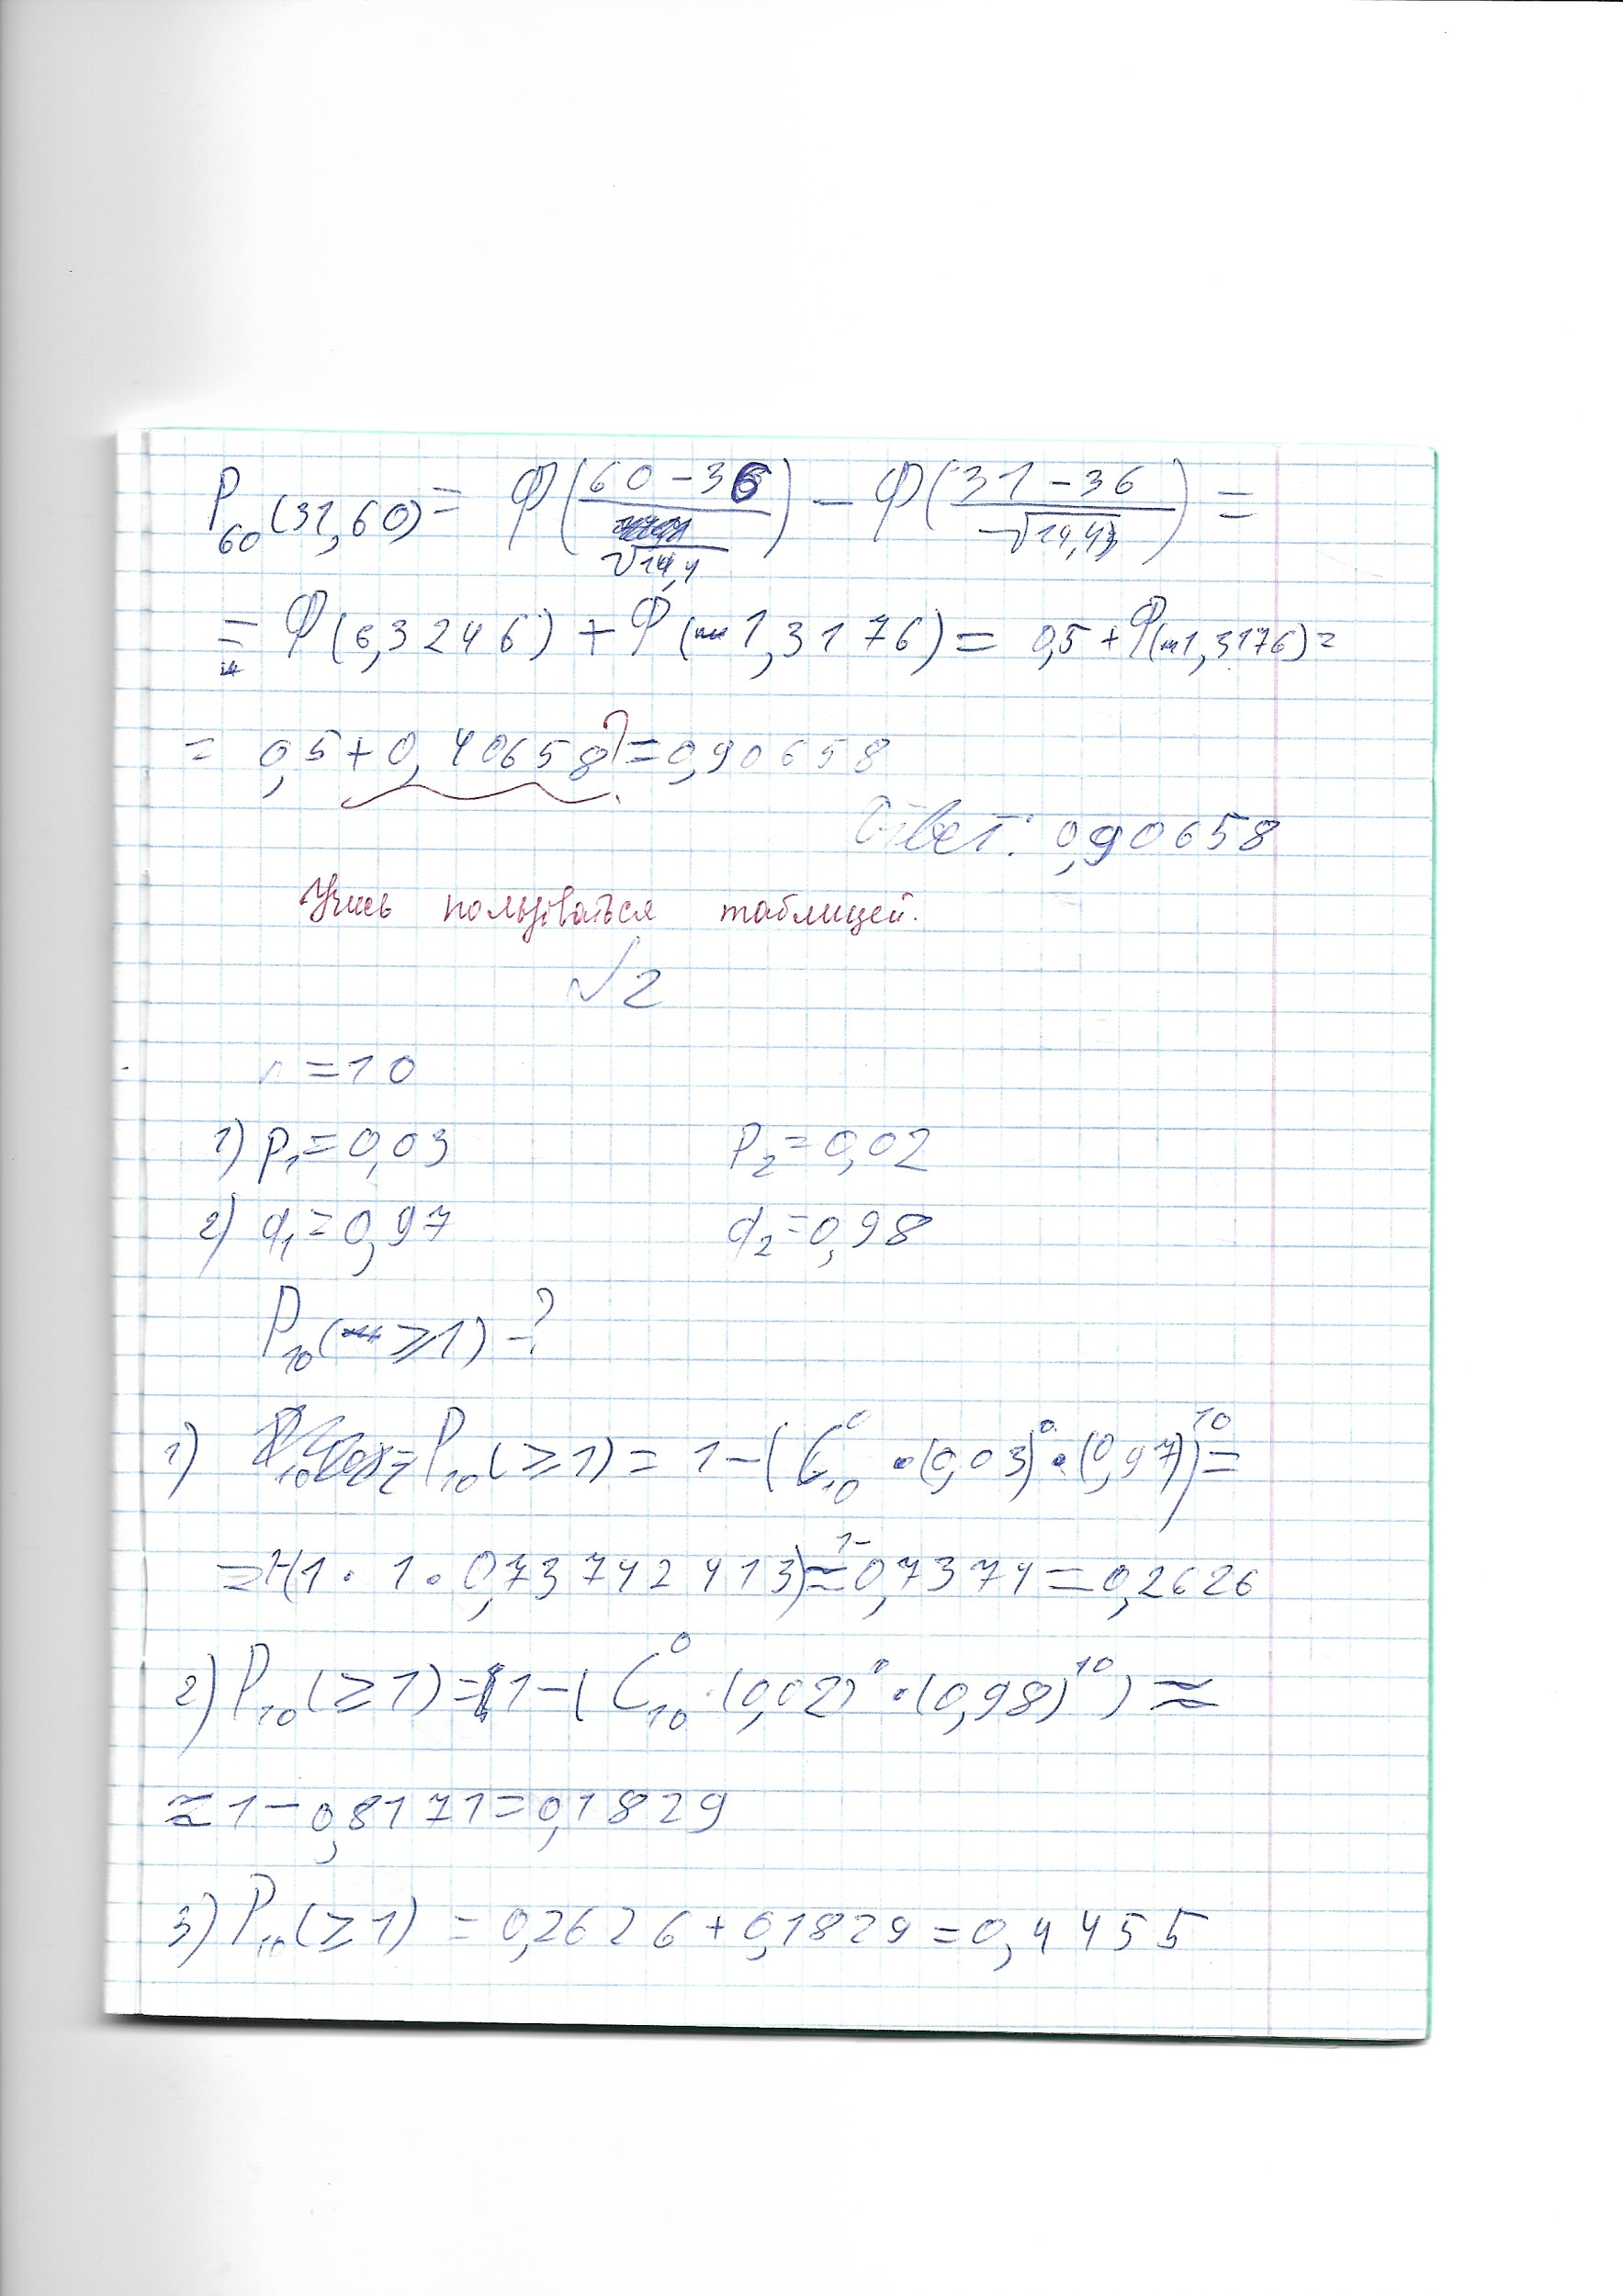 P₆₀(31,60) = Φ((60-36)/√14,4) - Φ((31-36)/√14,4) =
= Φ(6,3246) + Φ(1,3176) = 0,5 + Φ(1,3176) =
= 0,5 + 0,40658 ? = 0,90658
Ответ: 0,90658
Учись пользоваться таблицей.
№2
n = 10
1) p₁ = 0,03 p₂ = 0,02
2) q₁ = 0,97 q₂ = 0,98
P₁₀(≥1) - ?
1) P₁₀(≥1) = 1 - (C₁₀⁰ · (0,03)⁰ · (0,97)¹⁰) =
= 1-(1 · 1 · 0,73742413) ≈ 1- 0,7374 = 0,2626
2) P₁₀(≥1) = 1 - (C₁₀⁰ · (0,02)⁰ · (0,98)¹⁰) ≈
≈ 1 - 0,8171 = 0,1829
3) P₁₀(≥1) = 0,2626 + 0,1829 = 0,4455